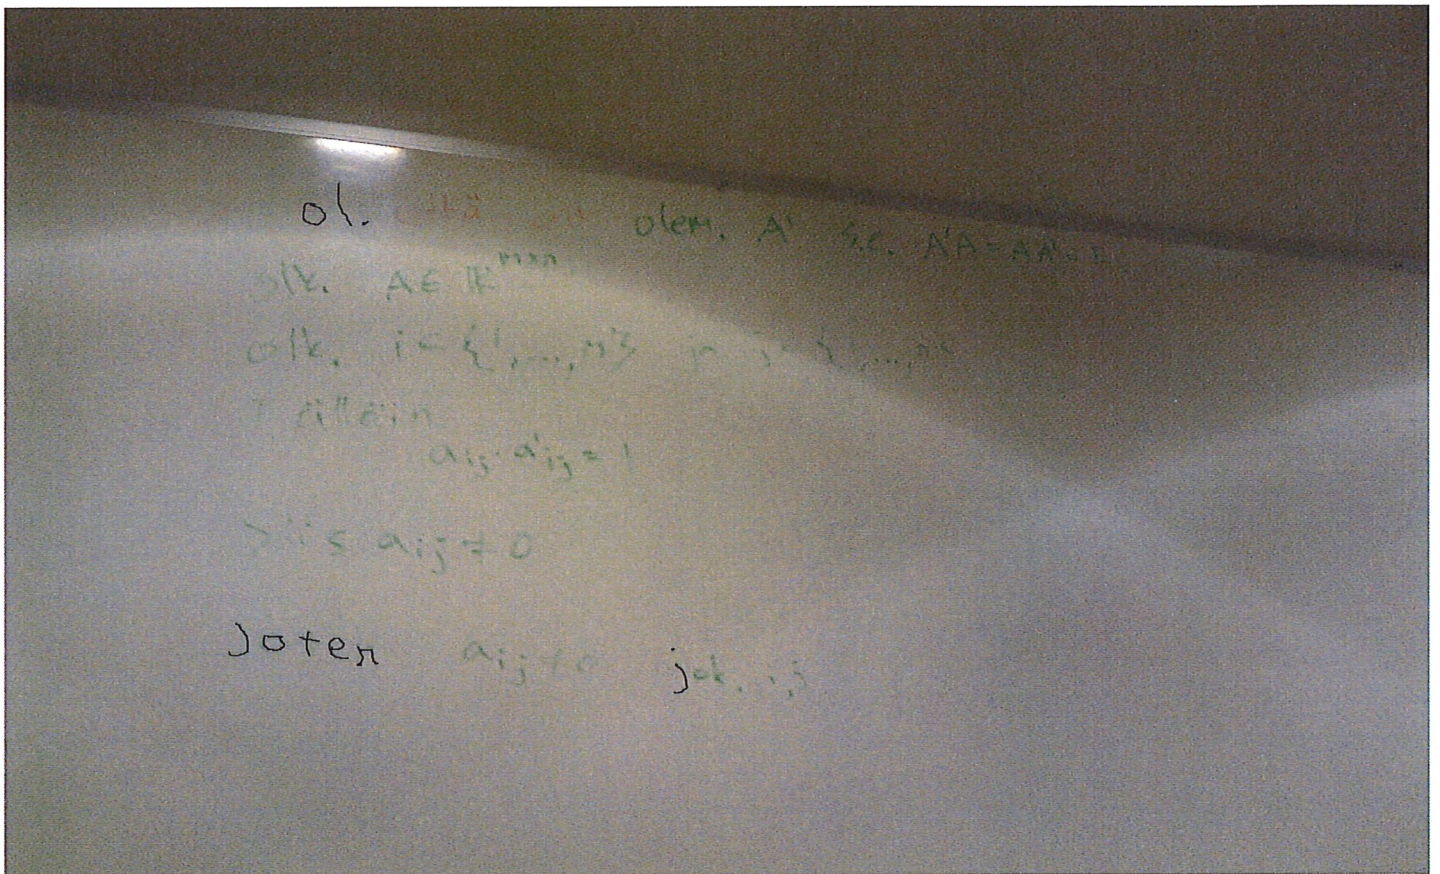 ol. että olem. A' s.e. A'A=AA'=I.
olk. A∈ℝᵐˣⁿ
olk. i∈{1,...,m} ja j∈{1,...,n}
Tällöin
aᵢⱼ·a'ᵢⱼ=1
Siis aᵢⱼ≠0
joten aᵢⱼ≠0 jok. i,j